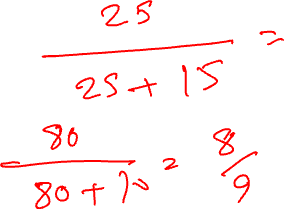 25/(25 + 15) =
80/(80 + 10) = 8/9